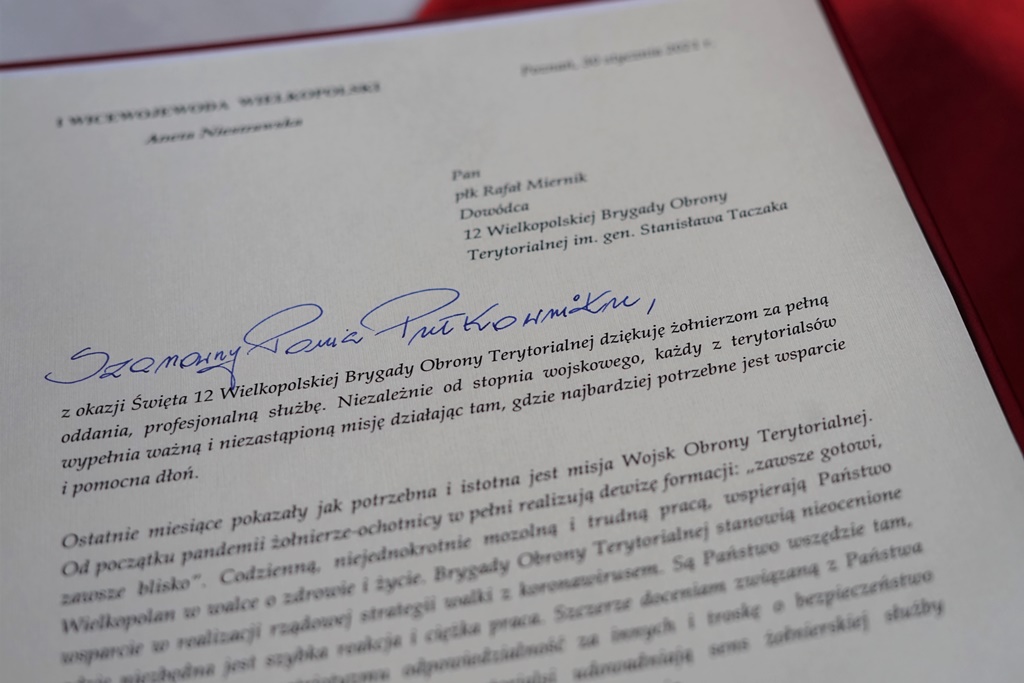 I WICEWOJEWODA WIELKOPOLSKI
Aneta Niestrawska
Poznań, 20 stycznia 2021 r.
Pan
płk Rafał Miernik
Dowódca
12 Wielkopolskiej Brygady Obrony
Terytorialnej im. gen. Stanisława Taczaka
Szanowny Panie Pułkowniku,
z okazji Święta 12 Wielkopolskiej Brygady Obrony Terytorialnej dziękuję żołnierzom za pełną
oddania, profesjonalną służbę. Niezależnie od stopnia wojskowego, każdy z terytorialsów
wypełnia ważną i niezastąpioną misję działając tam, gdzie najbardziej potrzebne jest wsparcie
i pomocna dłoń.
Ostatnie miesiące pokazały jak potrzebna i istotna jest misja Wojsk Obrony Terytorialnej.
Od początku pandemii żołnierze-ochotnicy w pełni realizują dewizę formacji: „zawsze gotowi,
zawsze blisko”. Codzienną, niejednokrotnie mozolną i trudną pracą, wspierają Państwo
Wielkopolan w walce o zdrowie i życie. Brygady Obrony Terytorialnej stanowią nieocenione
wsparcie w realizacji rządowej strategii walki z koronawirusem. Są Państwo wszędzie tam,
gdzie niezbędna jest szybka reakcja i ciężka praca. Szczerze doceniam związaną z Państwa
odpowiedzialność za innych i troskę o bezpieczeństwo
udowadniają sens żołnierskiej służby